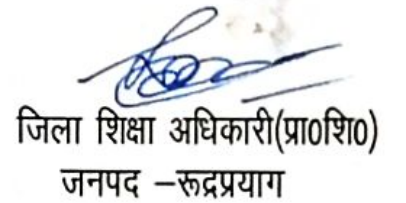 जिला शिक्षा अधिकारी(प्रा0शि0)
जनपद –रूद्रप्रयाग